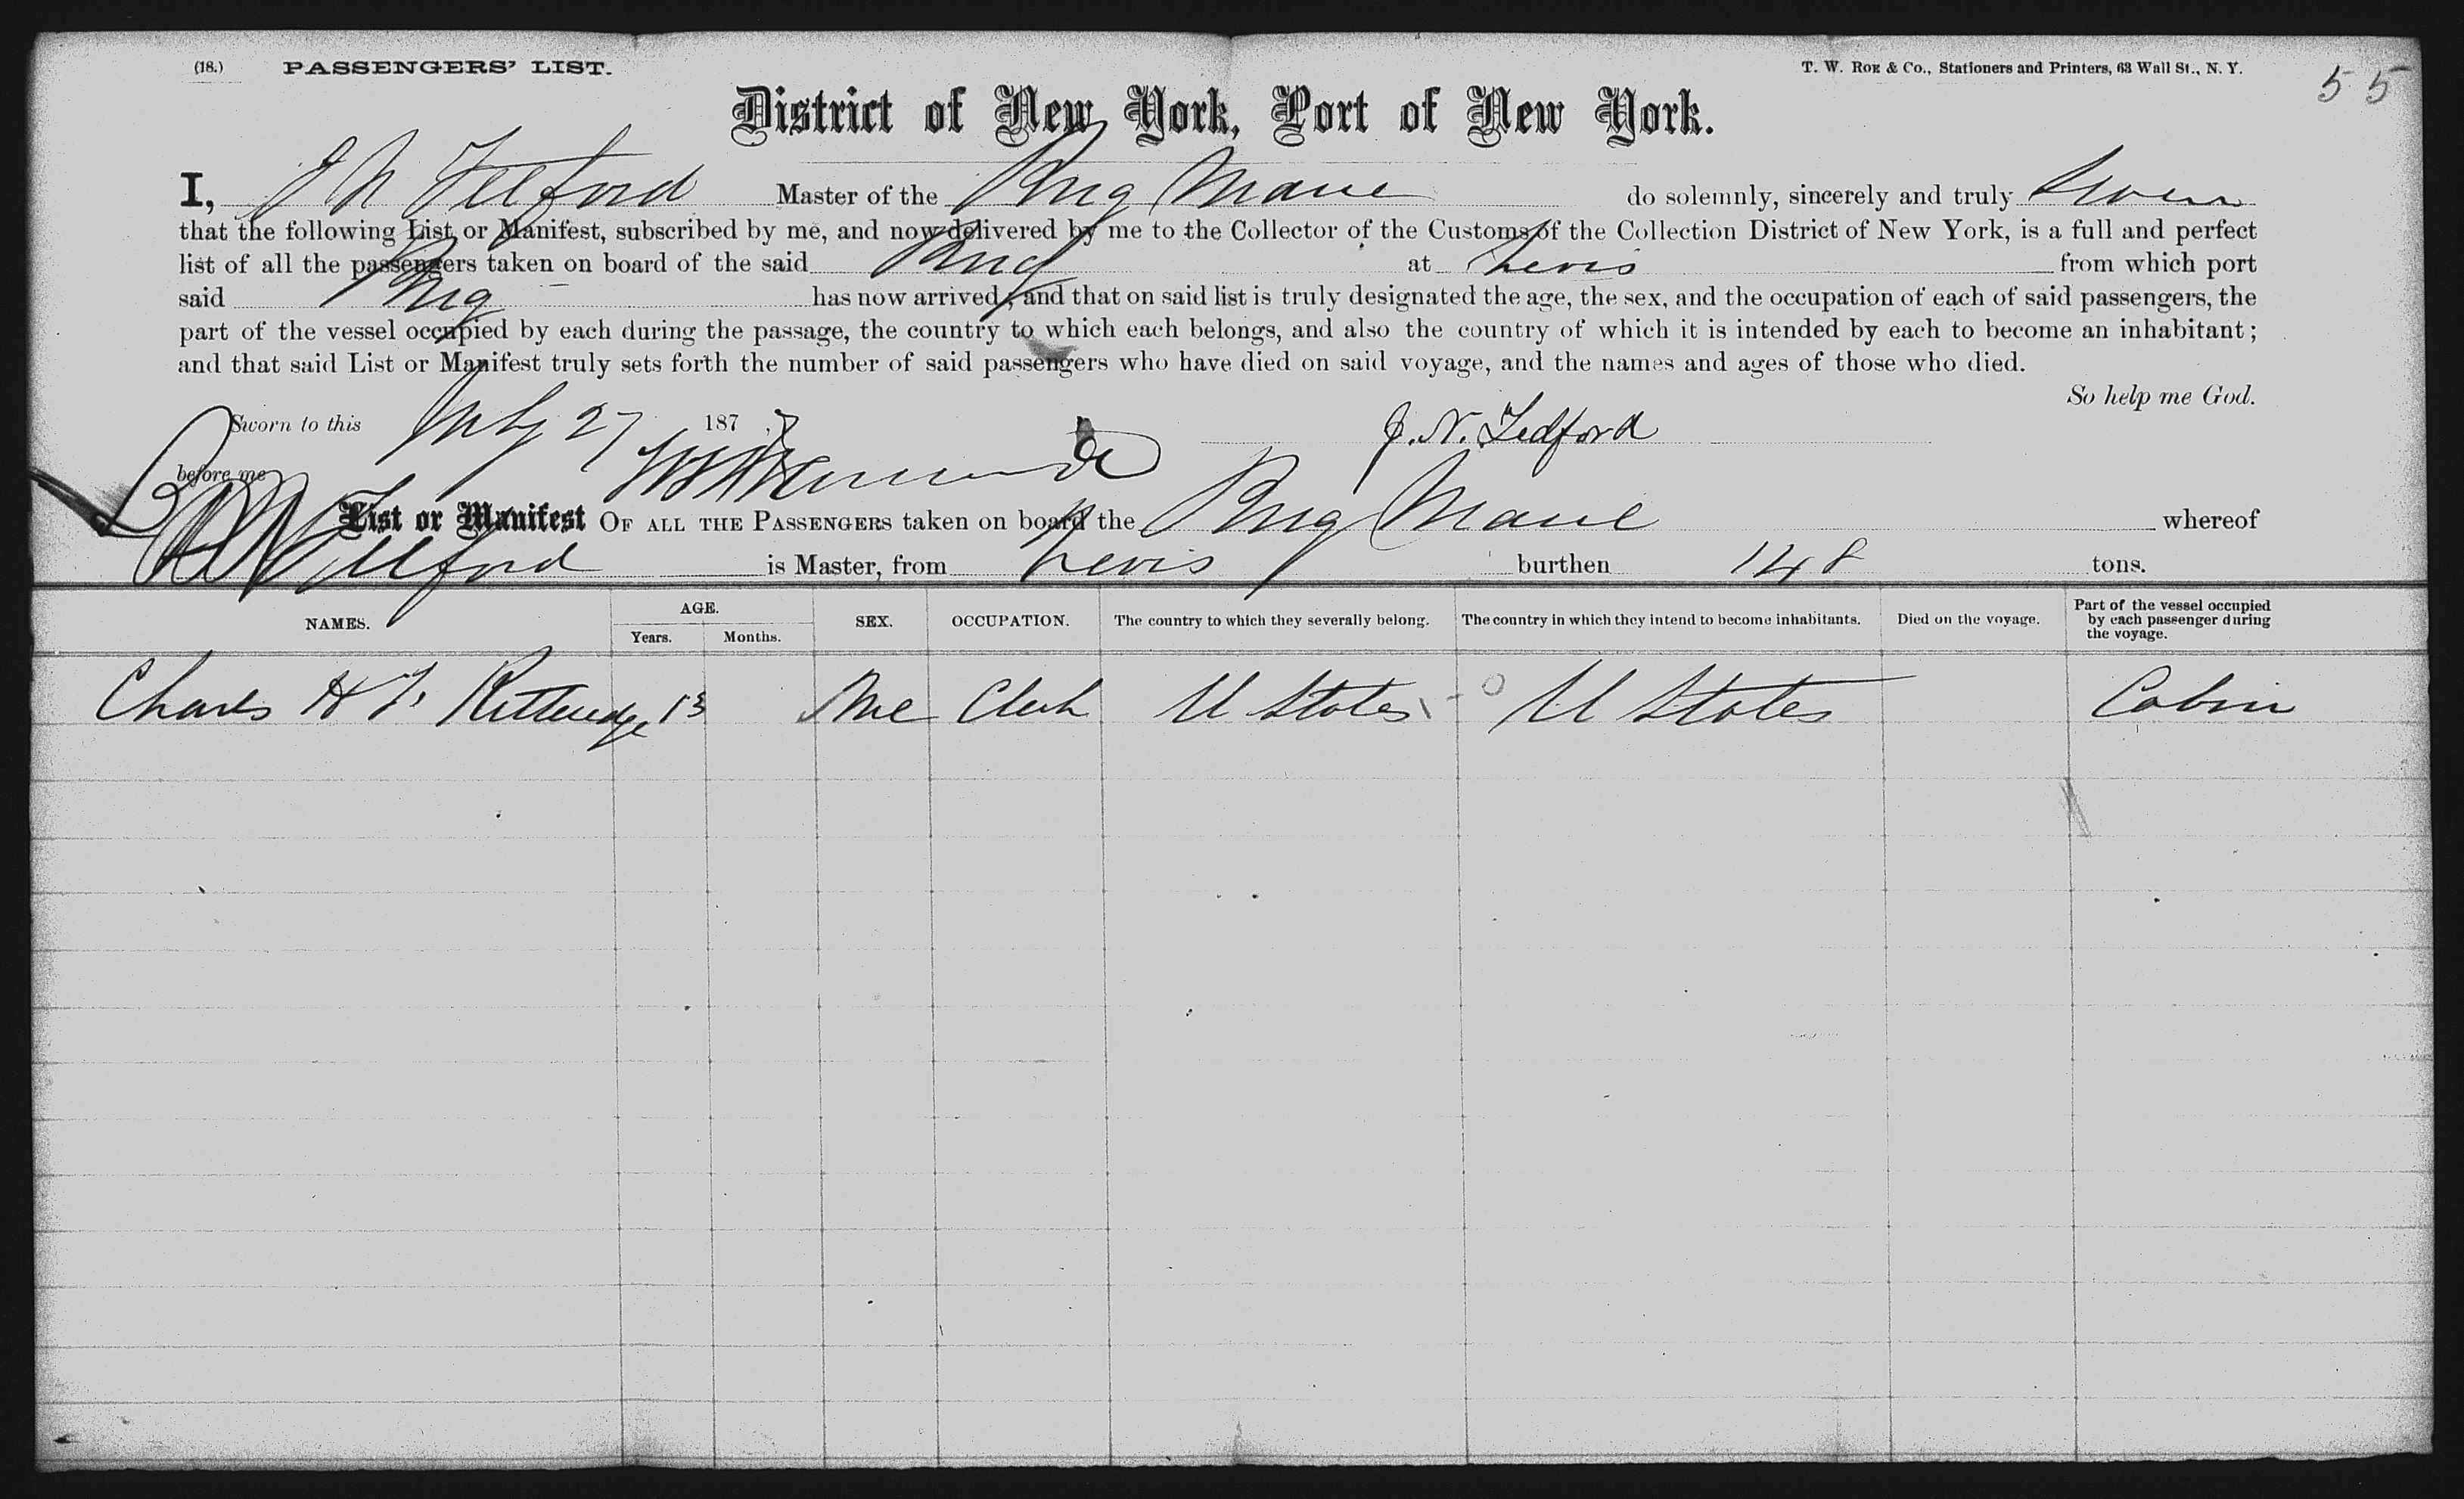 (18.) PASSENGERS' LIST. T. W. Roe & Co., Stationers and Printers, 63 Wall St., N. Y. 55
District of New York, Port of New York.
I, J N Tedford Master of the Brig do solemnly, sincerely and truly Swear
that the following List or Manifest, subscribed by me, and now delivered by me to the Collector of the Customs of the Collection District of New York, is a full and perfect
list of all the passengers taken on board of the said Brig at from which port
said Brig has now arrived; and that on said list is truly designated the age, the sex, and the occupation of each of said passengers, the
part of the vessel occupied by each during the passage, the country to which each belongs, and also the country of which it is intended by each to become an inhabitant;
and that said List or Manifest truly sets forth the number of said passengers who have died on said voyage, and the names and ages of those who died.
So help me God.
Sworn to this July 27 1877 J. N. Tedford
before me
List or Manifest OF ALL THE PASSENGERS taken on board the Brig whereof
J N Tedford is Master, from burthen 148 tons.
NAMES. AGE. Years. Months. SEX. OCCUPATION. The country to which they severally belong. The country in which they intend to become inhabitants. Died on the voyage. Part of the vessel occupied by each passenger during the voyage.
Charles H F Kittredge 13 Clerk U States U States Cabin